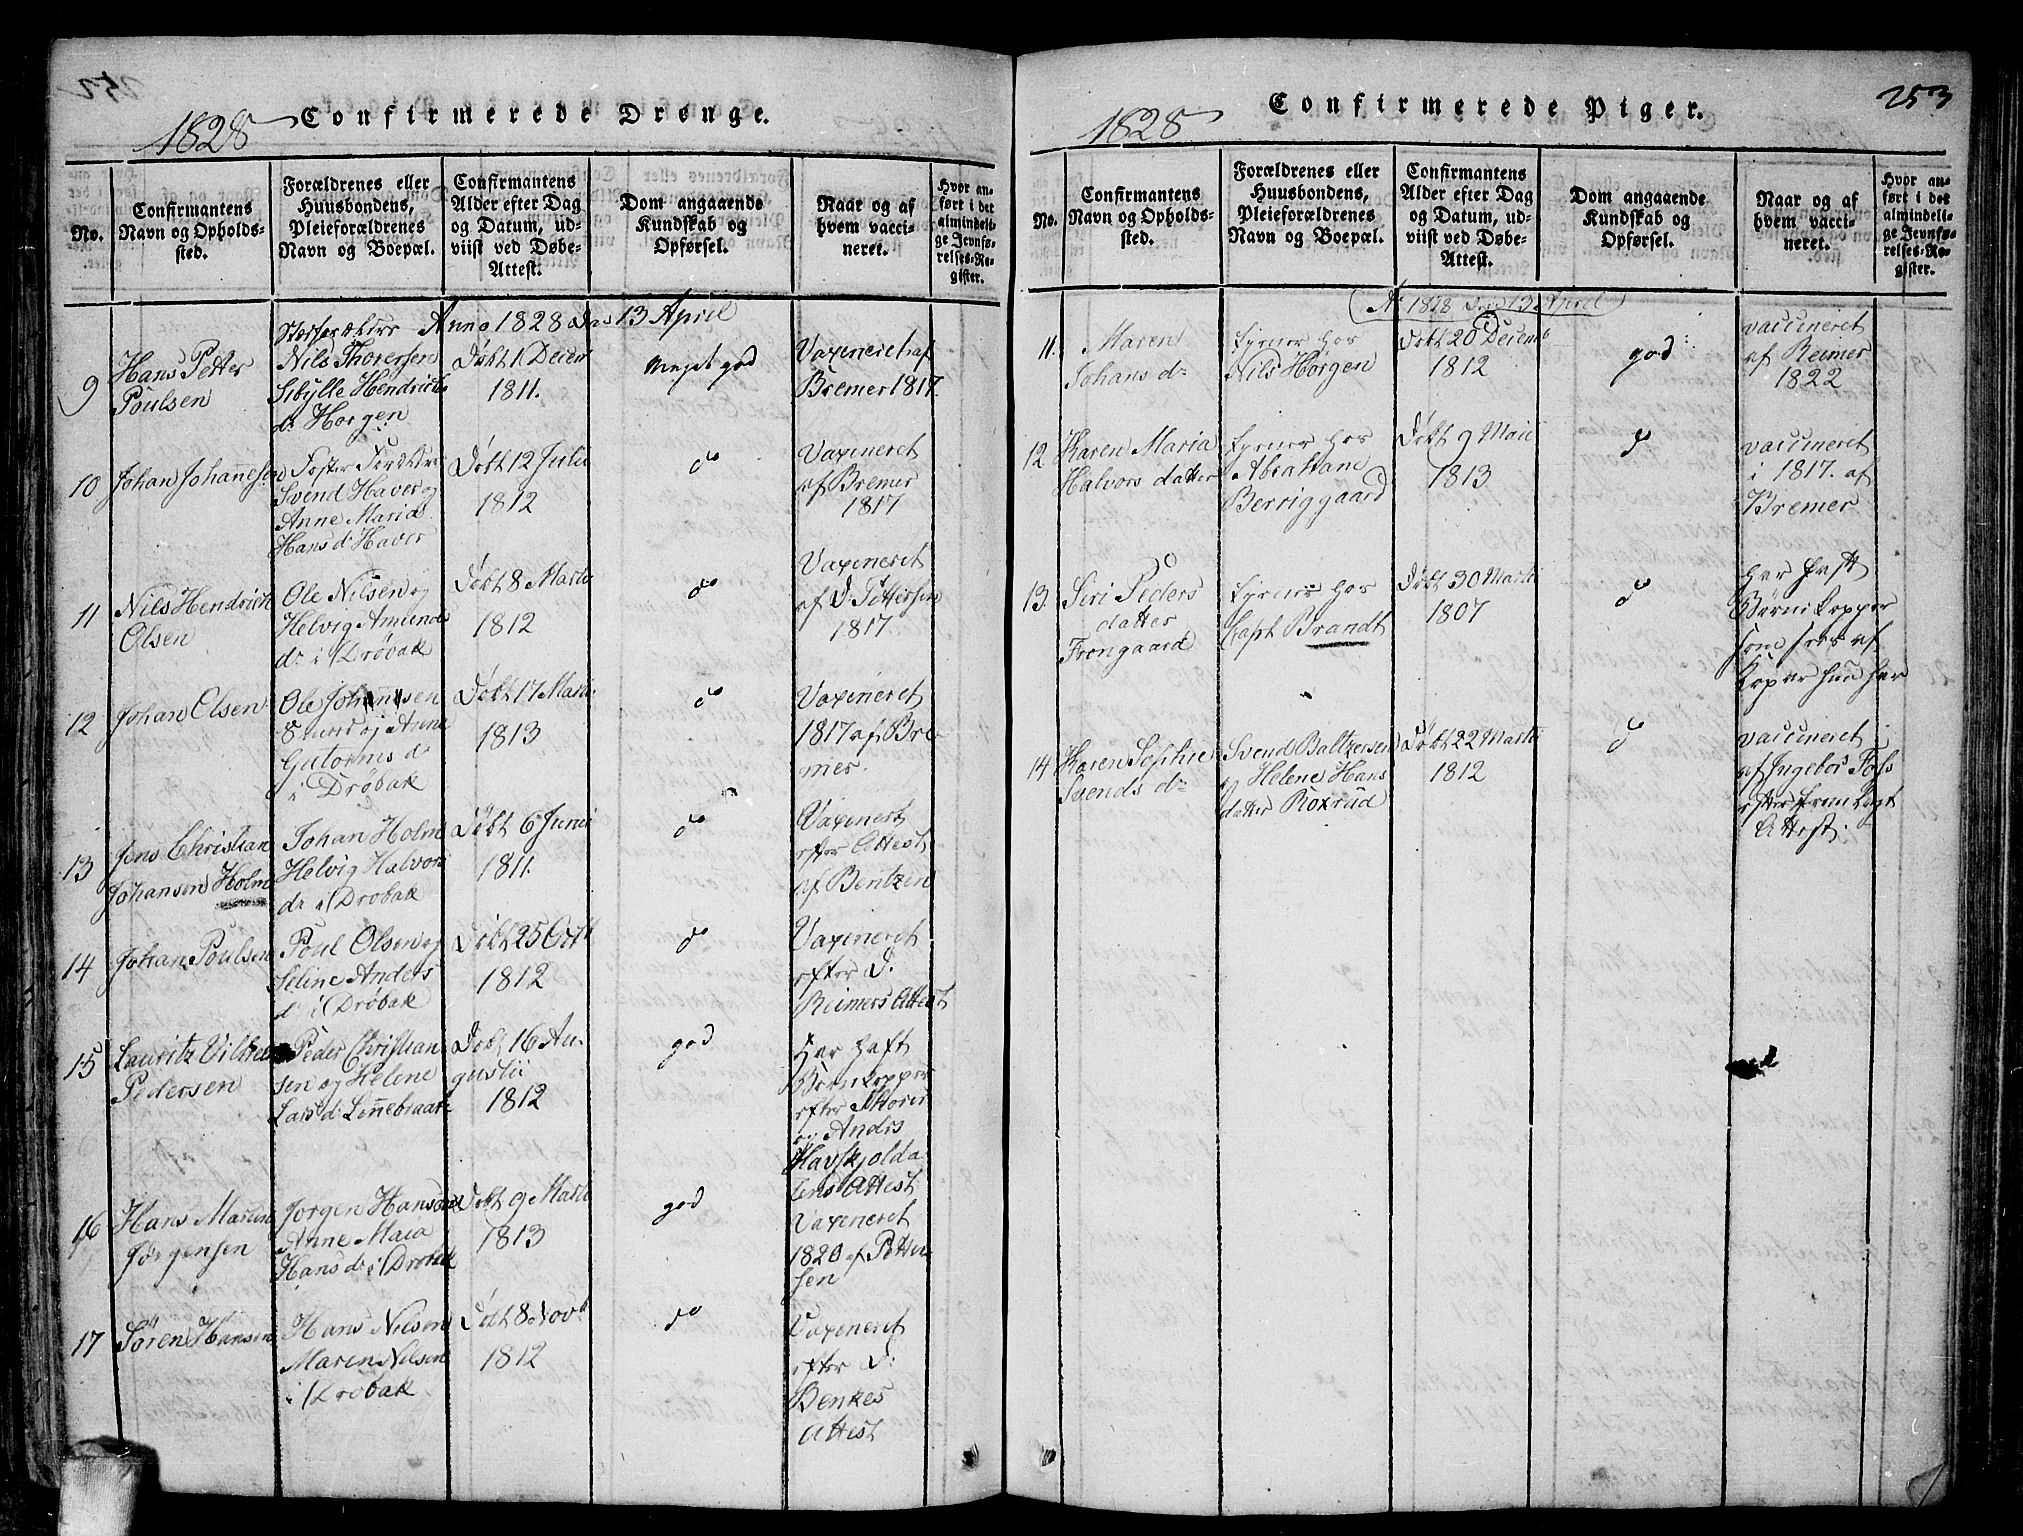 252
1828
Confirmerede Drenge.
No.
Confirmantens
Navn og Opholds-
sted.
Forældrenes eller
Huusbondens,
Pleieforældrenes
Navn og Boepæl.
Confirmantens
Alder efter Dag
og Datum, ud-
viist ved Døbe-
Attest.
Dom angaaende
Kundskab og
Opførsel.
Naar og af
hvem vacci-
neret.
Hvor an-
ført i det
almindeli-
ge Jevnfø-
relses-Re-
gister.
Anno 1828 den 13 April
9
Hans Petter
Poulsen
Nils Thoresen
Sibylle Hendrichs
d: Horgen
Døbt 1 Decem
1811.
meget god
Vaxineret af
Bremer 1817.
10
Johan Johanesen
Foster Foreldre
Svend Haver og
Anne Maria
Hans d: Haver
Døbt 12 Julii
1812
do
Vaxineret
af Bremer
1817
11
Nils Hendrich
Olsen
Ole Nilsen og
Helvig Amunds
d: i Drøbak
Døbt 8 Marti
1812
do
Vaxineret
af D: Pettersen
1817
12
Johan Olsen
Ole Johannsen
og Anne
Gutorms d
i Drøbak
Døbt 17 Marti
1813
do
Vaxineret
1817 af Bre-
mer.
13
Jens Christian
Johansen Holm
Johan Holm
Helvig Halvors
d: i Drøbak
Døbt 6 Junii
1811.
do
Vaxinert
efter Attest
af Bentzen
14
Johan Poulsen
Poul Olsen og
Seline Anders
d: i Drøbak
Døbt 25 Octb
1812
do
Vaxineret
efter D:
Reimers Attest
15
Lauritz Vilhelm
Pedersen
Peder Christian
sen og Helene
Lars d: Linnebraate
Døbt 16 Au-
gusti
1812
god
Har haft
Børnekopper
efter Thores
og Andrs
Havskjolda
lens Attest
16
Hans Martin
Jørgensen
Jørgen Hansen
Anne Maia
Hans d: i Drøbak
Døbt 9 Marti
1813
god
Vaxineret
1820 af Petter-
sen
17
Søren Hansen
Hans Nilsen
Maren Nilsen
i Drøbak
Døbt 8 Novb
1812
do
Vaxineret
efter D:
Benkes
Attest
253
1828
Confirmerede Piger.
No.
Confirmantens
Navn og Opholds-
sted.
Forældrenes eller
Huusbondens,
Pleieforældrenes
Navn og Boepæl.
Confirmantens
Alder efter Dag
og Datum, ud-
viist ved Døbe-
Attest.
Dom angaaende
Kundskab og
Opførsel.
Naar og af
hvem vacci-
neret.
Hvor an-
ført i det
almindeli-
ge Jevnfø-
relses-Re-
gister.
Ao 1828 den 13 April
11.
Maren
Johans d:
tjener hos
Nils Hørgen
Døbt 20 Decemb
1812
god
vaccineret
af Reimer
1822
12
Karen Maria
Halvors datter
tjener hos
Berriggaard
Døbt 9 Maii
1813
do
vaccineret
i 1817. af
Bremer
13.
Siri Peders
datter
Frongaard
tjener hos
Capt Brandt
Døbt 30 Marti
1807
do
Har haft
Børnekopper
som sees af
Kopar hun har
14
Karen Sophie
Svends d:
Svend Baltzersen
og Helene Hans
datter Roxrud
Døbt 22 Marti
1812
do
vaccineret
af Ingebor Foss
efter fremlagt
Attest.